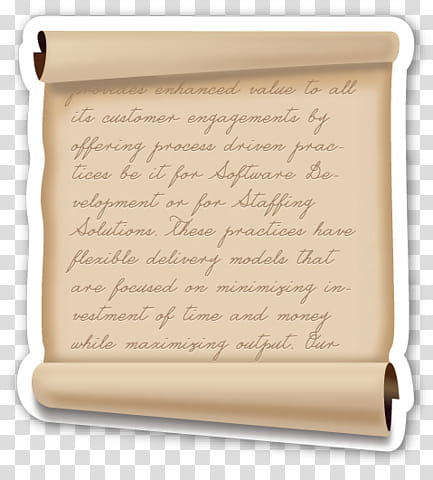 provides enhanced value to all
its customer engagements by
offering process driven prac-
tices be it for Software De-
velopment or for Staffing
Solutions. These practices have
flexible delivery models that
are focused on minimizing in-
vestment of time and money
while maximizing output. Our